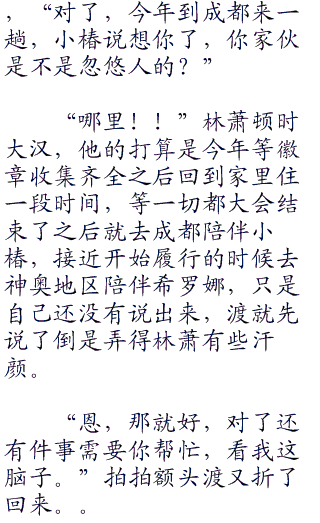 ，“对了，今年到成都来一
趟，小椿说想你了，你家伙
是不是忽悠人的？”
“哪里！！”林萧顿时
大汉，他的打算是今年等徽
章收集齐全之后回到家里住
一段时间，等一切都大会结
束了之后就去成都陪伴小
椿，接近开始履行的时候去
神奥地区陪伴希罗娜，只是
自己还没有说出来，渡就先
说了倒是弄得林萧有些汗
颜。
“恩，那就好，对了还
有件事需要你帮忙，看我这
脑子。”拍拍额头渡又折了
回来。。